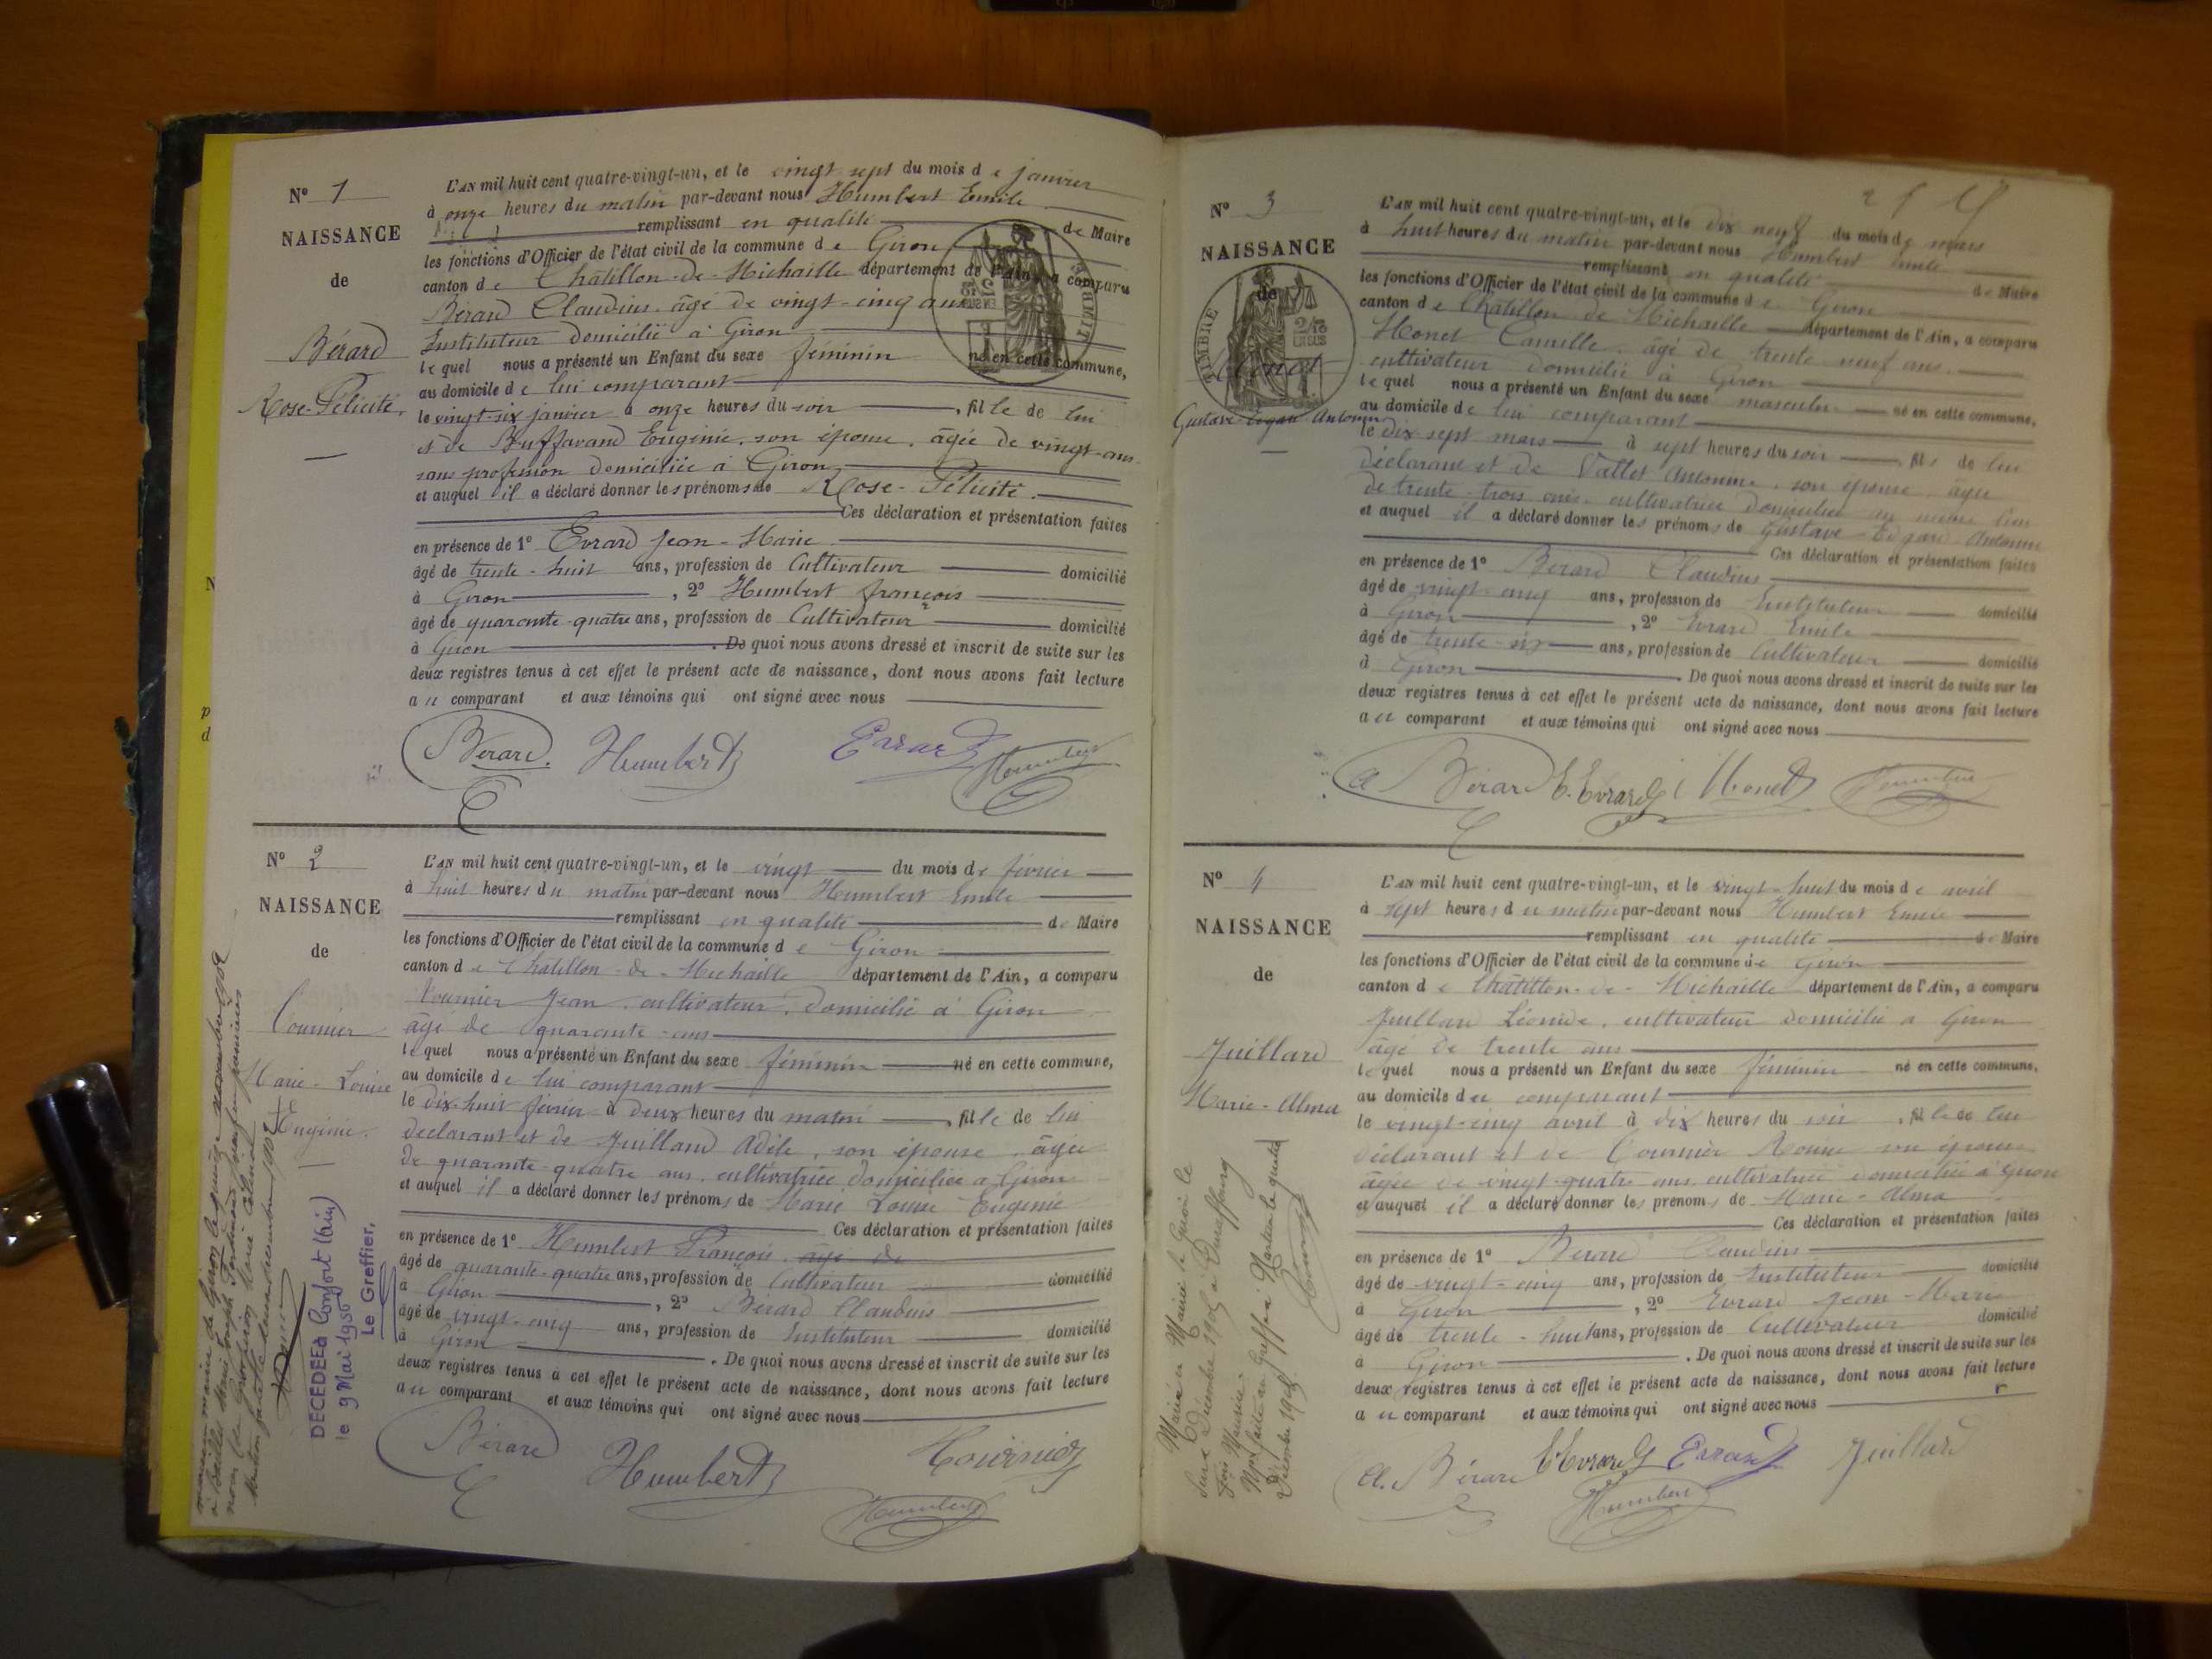 N° 1
NAISSANCE
de
Bérard
Rose-Félicité.
L'AN mil huit cent quatre-vingt-un, et le vingt sept du mois de janvier
à onze heures du matin par-devant nous Humbert Emile
remplissant en qualité de Maire
les fonctions d'Officier de l'état civil de la commune de Giron
canton de Châtillon-de-Michaille département de l'Ain, a comparu
Bérard Claudius, âgé de vingt-cinq ans
Instituteur domicilié à Giron
lequel nous a présenté un Enfant du sexe féminin né en cette commune,
au domicile de lui comparant
le vingt-six janvier à onze heures du soir, fille de lui
et de Buffavand Eugénie, son épouse, âgée de vingt-ans
sans profession domiciliée à Giron
et auquel il a déclaré donner les prénoms de Rose-Félicité.
Ces déclaration et présentation faites
en présence de 1° Evrard Jean-Marie
âgé de trente-huit ans, profession de Cultivateur domicilié
à Giron, 2° Humbert françois
âgé de quarante-quatre ans, profession de Cultivateur domicilié
à Giron. De quoi nous avons dressé et inscrit de suite sur les
deux registres tenus à cet effet le présent acte de naissance, dont nous avons fait lecture
au comparant et aux témoins qui ont signé avec nous
Bérard. Humbert Evrard Humbert
N° 2
NAISSANCE
de
Tournier
Marie-Louise
Eugénie.
L'AN mil huit cent quatre-vingt-un, et le vingt du mois de février
à huit heures du matin par-devant nous Humbert Emile
remplissant en qualité de Maire
les fonctions d'Officier de l'état civil de la commune de Giron
canton de Châtillon-de-Michaille département de l'Ain, a comparu
Tournier Jean, cultivateur, domicilié à Giron
âgé de quarante-ans
lequel nous a présenté un Enfant du sexe féminin né en cette commune,
au domicile de lui comparant
le dix-huit février à deux heures du matin, fille de lui
déclarant et de Juilland Adèle, son épouse, âgée
de quarante-quatre ans, cultivatrice domiciliée à Giron
et auquel il a déclaré donner les prénoms de Marie Louise Eugénie
Ces déclaration et présentation faites
en présence de 1° Humbert François, age de
âgé de quarante-quatre ans, profession de Cultivateur domicilié
à Giron, 2° Bérard Claudius
âgé de vingt-cinq ans, profession de Instituteur domicilié
à Giron. De quoi nous avons dressé et inscrit de suite sur les
deux registres tenus à cet effet le présent acte de naissance, dont nous avons fait lecture
au comparant et aux témoins qui ont signé avec nous
Bérard Humbert Tournier
Humbert
DECEDEE à Confort (Ain)
le 9 Mai 1950
Le Greffier,
N° 3
NAISSANCE
de
Monet
Gustave-Edgard-Antonin
TIMBRE
L'AN mil huit cent quatre-vingt-un, et le dix neuf du mois de mars
à huit heures du matin par-devant nous Humbert Emile
remplissant en qualité de Maire
les fonctions d'Officier de l'état civil de la commune de Giron
canton de Châtillon de Michaille département de l'Ain, a comparu
Monet Camille, âgé de trente neuf ans
cultivateur domicilié à Giron
lequel nous a présenté un Enfant du sexe masculin né en cette commune,
au domicile de lui comparant
le dix sept mars à sept heures du soir, fils de lui
déclarant et de Vallet Antonine, son épouse âgée
de trente-trois ans, cultivatrice domiciliée au même lieu
et auquel il a déclaré donner les prénoms de Gustave-Edgard-Antonin
Ces déclaration et présentation faites
en présence de 1° Bérard Claudius
âgé de vingt-cinq ans, profession de Instituteur domicilié
à Giron, 2° Evrard Emile
âgé de trente-six ans, profession de Cultivateur domicilié
à Giron. De quoi nous avons dressé et inscrit de suite sur les
deux registres tenus à cet effet le présent acte de naissance, dont nous avons fait lecture
au comparant et aux témoins qui ont signé avec nous
Cl Bérard E. Evrard Monet Humbert
N° 4
NAISSANCE
de
Juillard
Marie-Alma
L'AN mil huit cent quatre-vingt-un, et le vingt-huit du mois de avril
à sept heures du matin par-devant nous Humbert Emile
remplissant en qualité de Maire
les fonctions d'Officier de l'état civil de la commune de Giron
canton de Châtillon-de-Michaille département de l'Ain, a comparu
Juillard Léonide, cultivateur domicilié à Giron
âgé de trente ans
lequel nous a présenté un Enfant du sexe féminin né en cette commune,
au domicile du comparant
le vingt-cinq avril à dix heures du soir, fille de lui
déclarant et de Tournier son épouse
âgée de vingt-quatre ans, cultivatrice domiciliée à Giron
et auquel il a déclaré donner les prénoms de Marie-Alma
Ces déclaration et présentation faites
en présence de 1° Bérard Claudius
âgé de vingt-cinq ans, profession de Instituteur domicilié
à Giron, 2° Evrard Jean-Marie
âgé de trente-huit ans, profession de Cultivateur domicilié
à Giron. De quoi nous avons dressé et inscrit de suite sur les
deux registres tenus à cet effet le présent acte de naissance, dont nous avons fait lecture
au comparant et aux témoins qui ont signé avec nous
Cl. Bérard E. Evrard Evrard Juillard
Humbert